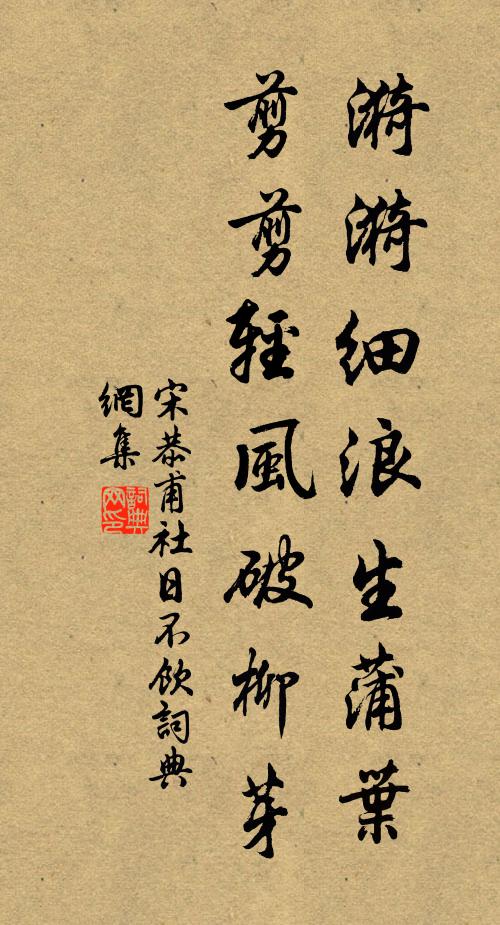 漪漪細浪生蒲葉
剪剪輕風破柳芽
宋恭甫社日不飲詞典
網集
詞典
网印